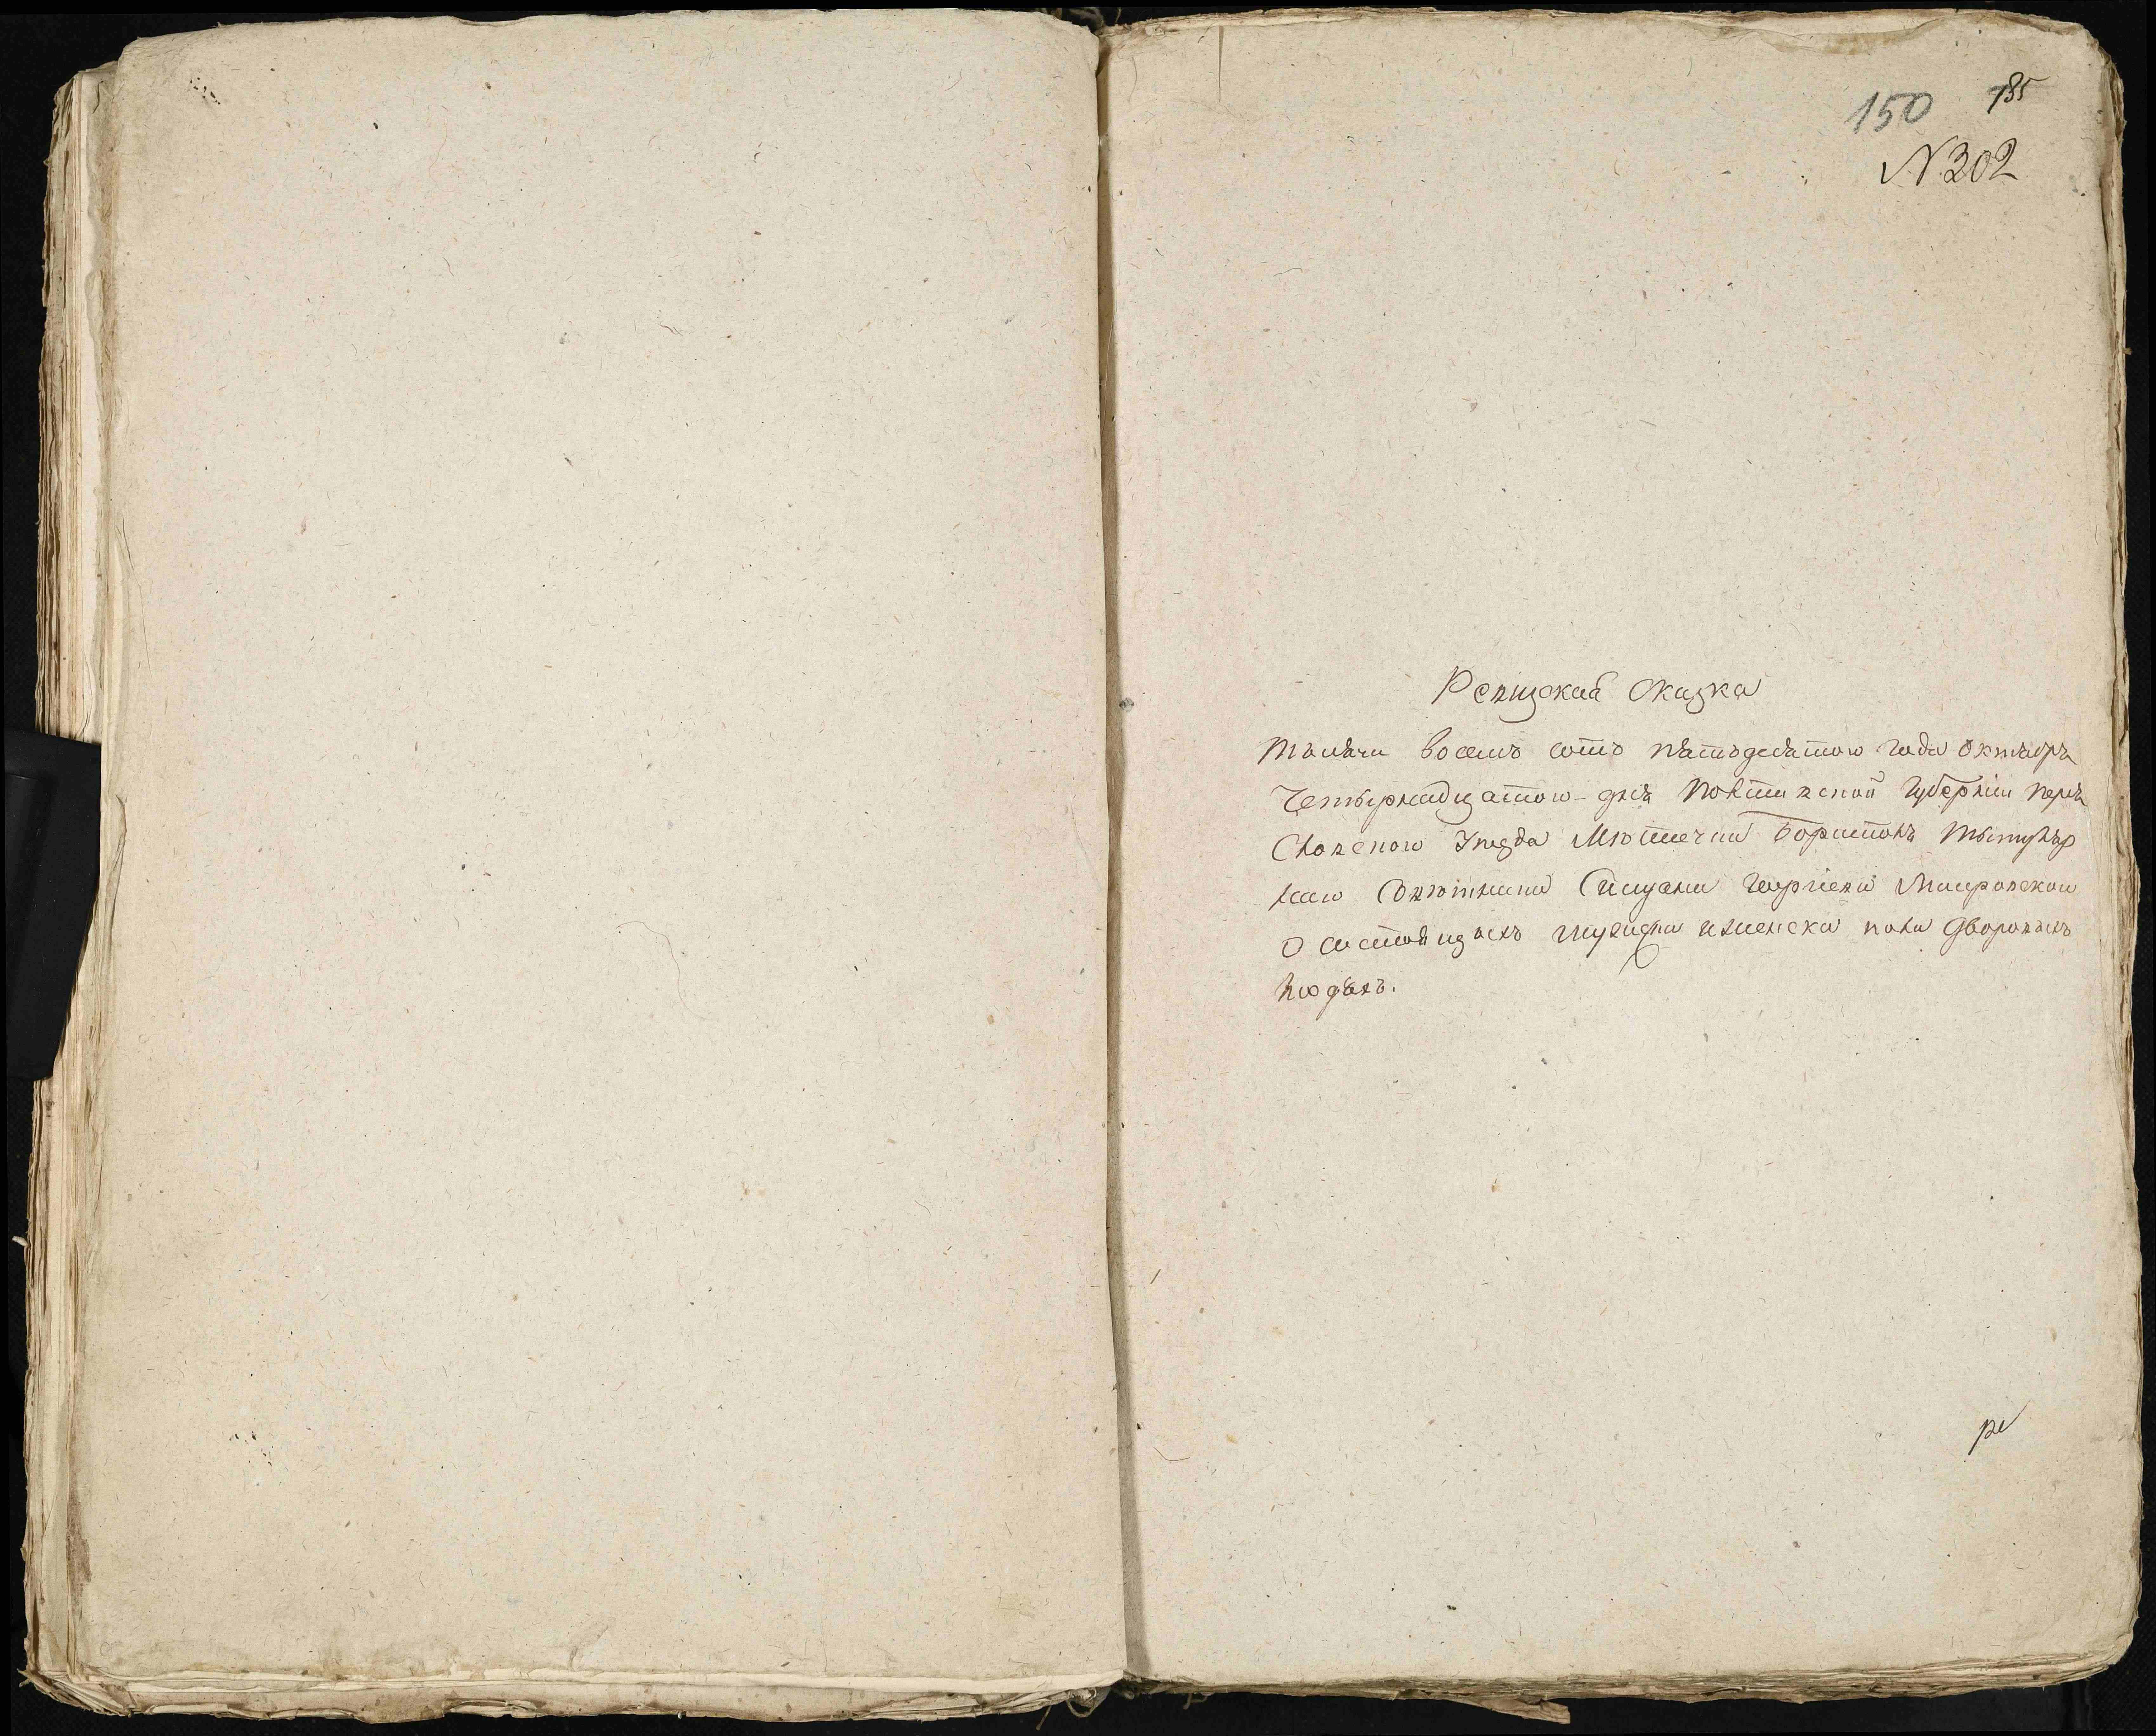 150 785
N 302
Ревизская Сказка
тысяча восемь сотъ пятьдесятого года Октября
Четырнадцатого - дня Полтавской Губернiи Перея
Славского Уезда Местечка Борисполя Титуляр
наго Советника Георгiева
О состоящихъ мужеска иженска пола дворовыхъ
людяхъ.
ре